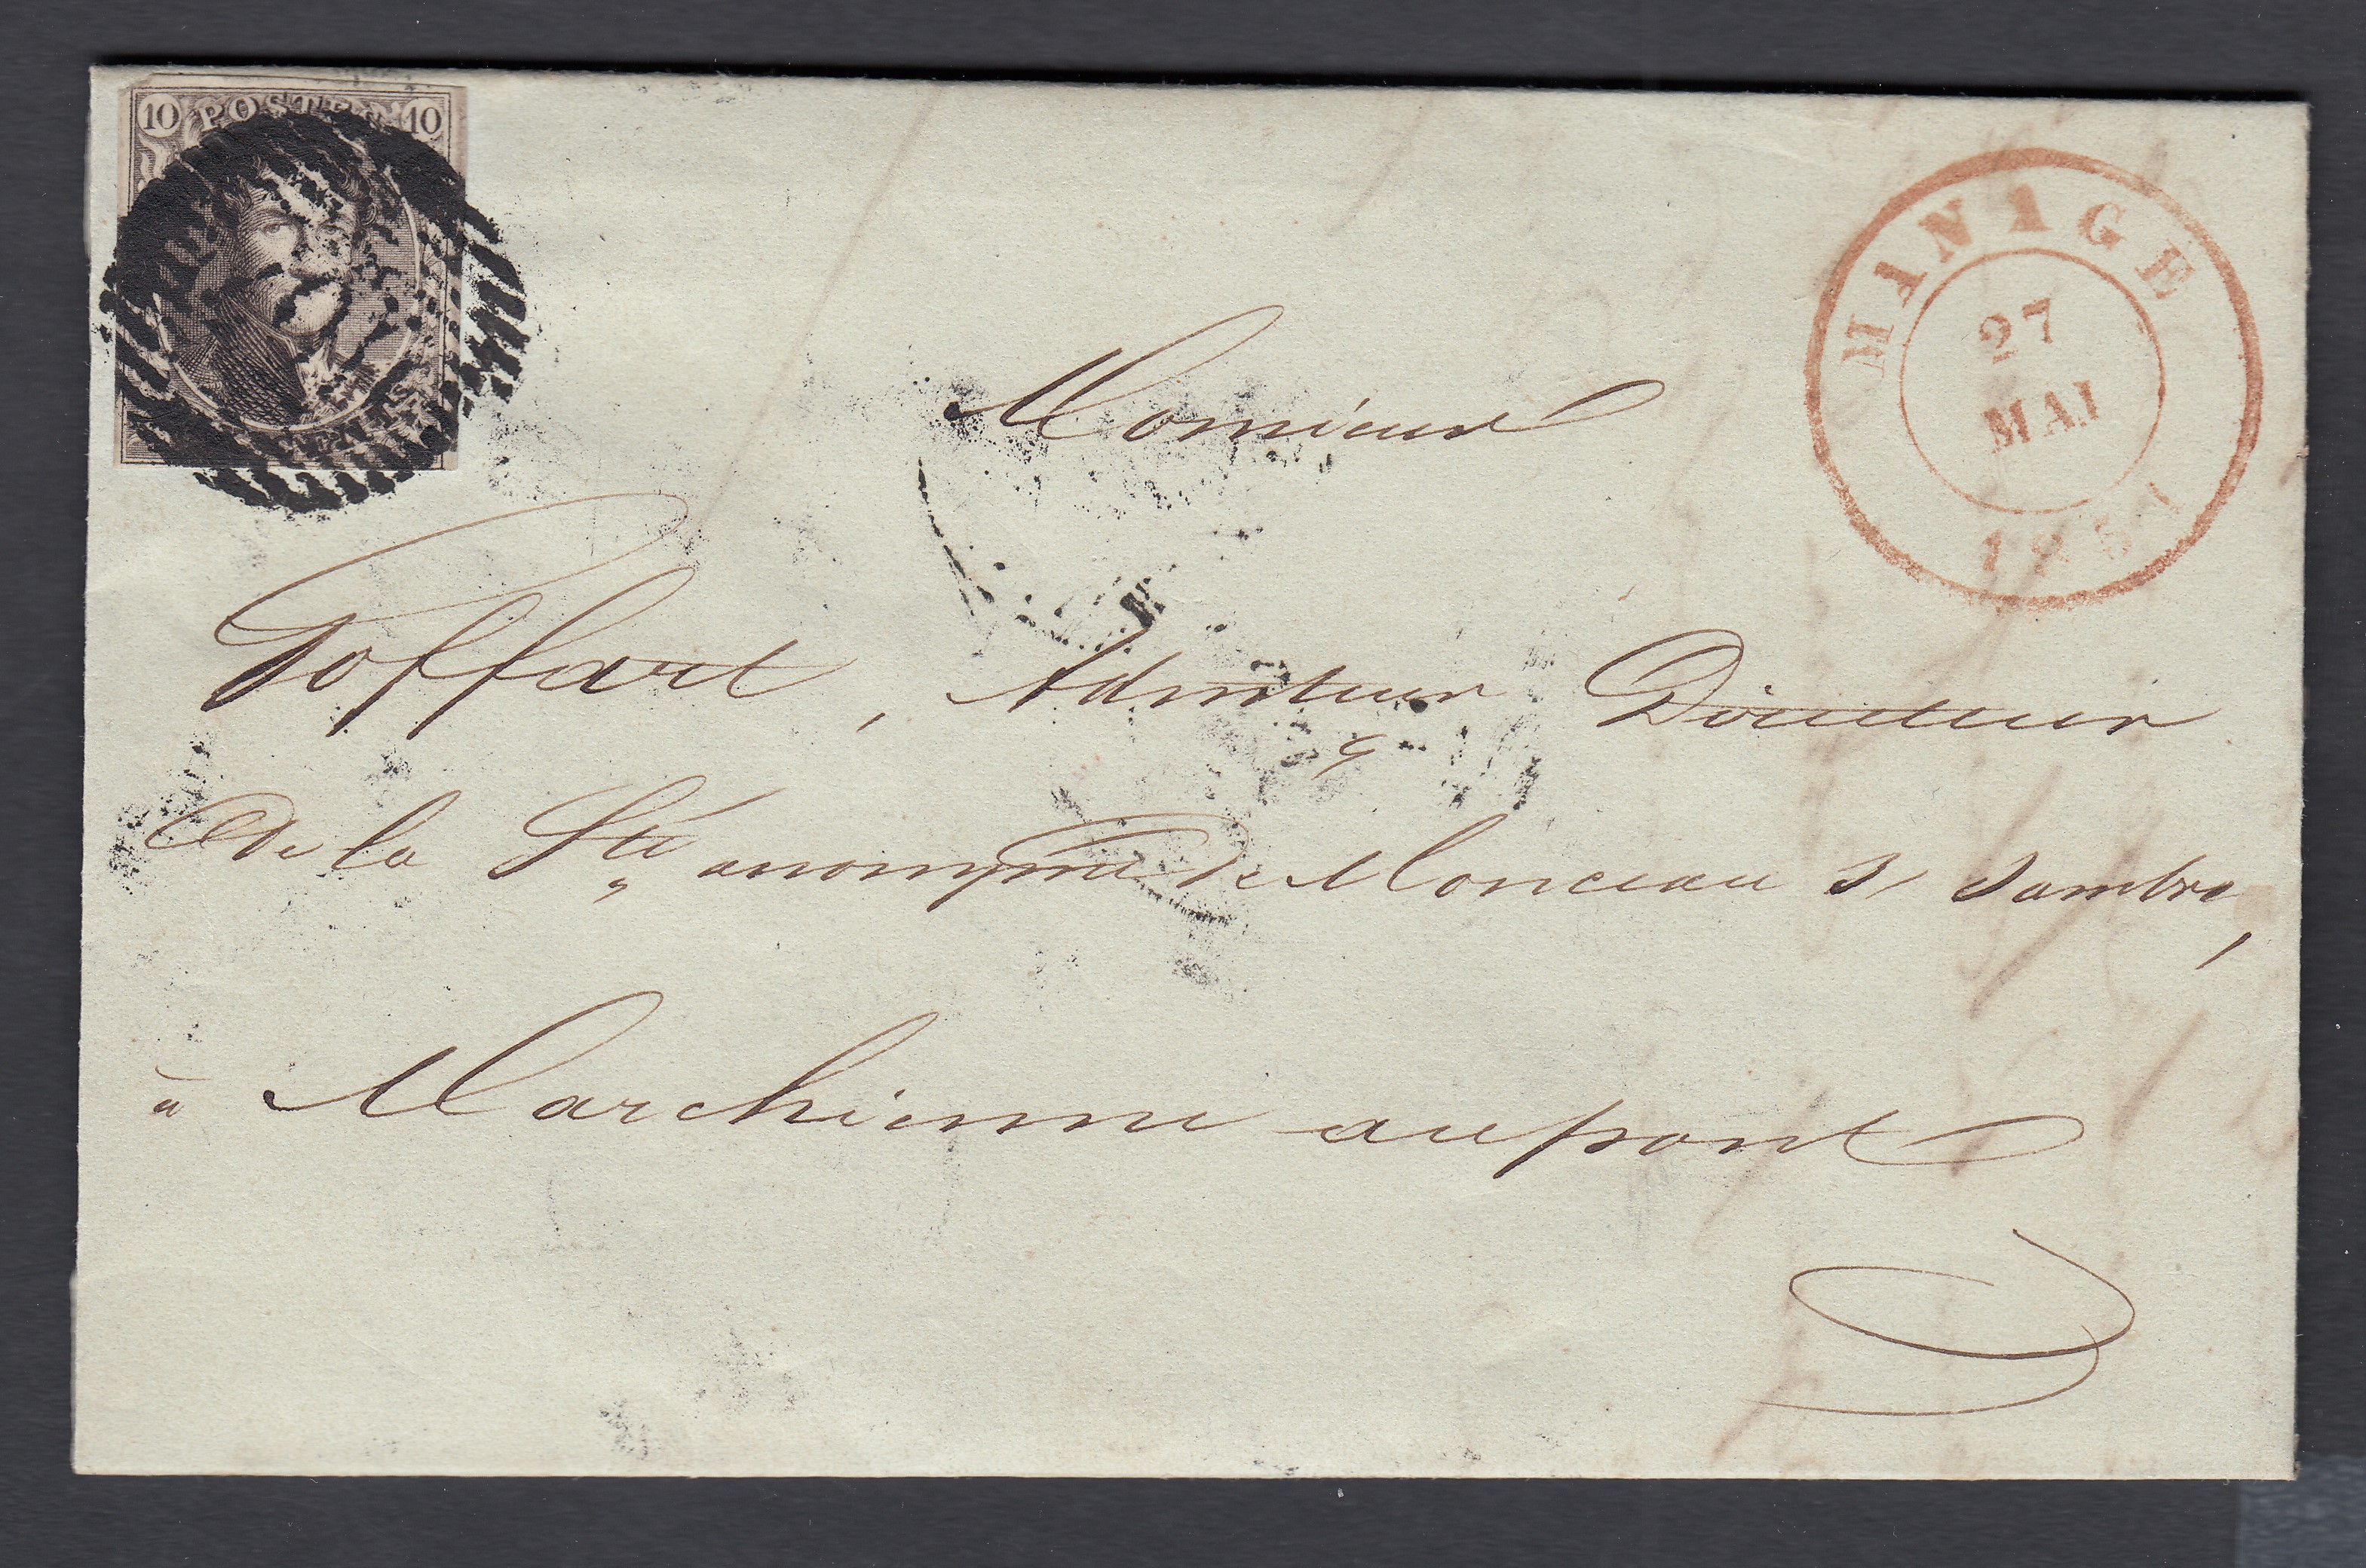 10 POSTES 10
MANAGE
27
MAI
1851
Monsieur
Goffart, Admteur Directeur
De la Sté anonyme de Monceau s/ Sambre,
à Marchienne au pont